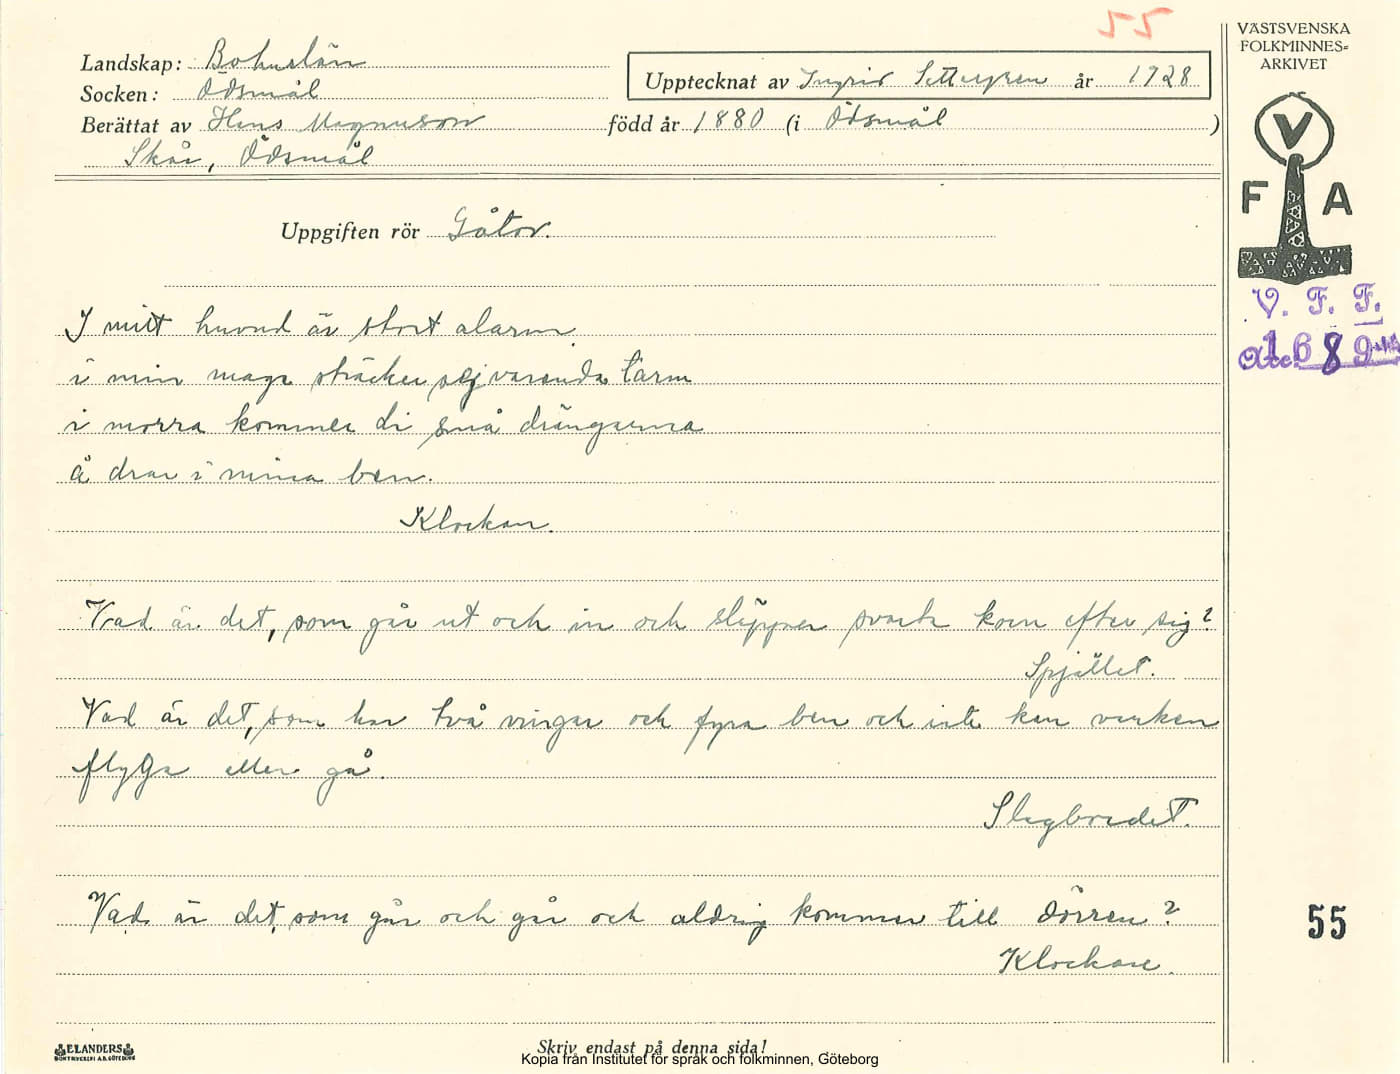 55
VÄSTSVENSKA
FOLKMINNES=
ARKIVET
Landskap: Bohuslän
Socken: Ödsmål
Upptecknat av Ingrid Settergren år 1928
Berättat av Hans Magnuson född år 1880 (i Ödsmål )
Skår, Ödsmål
V
F A
Uppgiften rör Gåtor.
V. F. F.
Acc. 1689
I mitt huvud är stort alarm
i min mage sträcker sej varenda tarm
i morra kommer di små drängarna
å drar i mina ben.
Klockan.
Vad är det, som går ut och in och släpper svarta korn efter sig?
Spjället.
Vad är det, som har två vingar och fyra ben och inte kan varken
flyga eller gå.
Slagbordet.
Vad är det, som går och går och aldrig kommer till dörren?
Klockan.
55
ELANDERS
BOKTRYCKERI A.B. GÖTEBORG
Skriv endast på denna sida!
Kopia från Institutet för språk och folkminnen, Göteborg